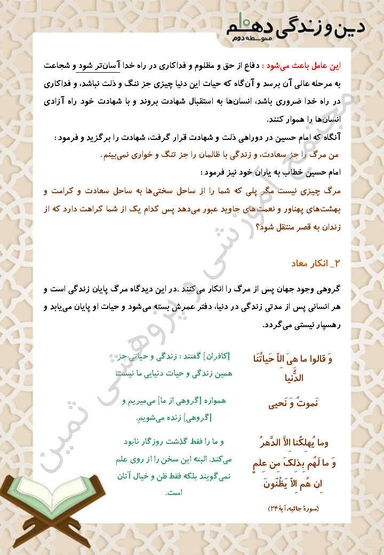 دین و زندگی دهم
متوسطه دوم
این عامل باعث می‌شود : دفاع از حق و مظلوم و فداکاری در راه خدا آسان‌تر شود و شجاعت
به مرحله عالی آن برسد و آن‌گاه که حیات این دنیا چیزی جز ننگ و ذلت نباشد، و فداکاری
در راه خدا ضروری باشد، انسان‌ها به استقبال شهادت بروند و با شهادت خود راه آزادی
انسان‌ها را هموار کنند.
آنگاه که امام حسین در دوراهی ذلت و شهادت قرار گرفت، شهادت را برگزید و فرمود :
من مرگ را جز سعادت، و زندگی با ظالمان را جز تنگ و خواری نمی‌بینم .
امام حسین خطاب به یاران خود نیز فرمود :
مرگ چیزی نیست مگر پلی که شما را از ساحل سختی‌ها به ساحل سعادت و کرامت و
بهشت‌های پهناور و نعمت‌های جاوید عبور می‌دهد پس کدام یک از شما کراهت دارد که از
زندان به قصر منتقل شود؟
۲_ انکار معاد
گروهی وجود جهان پس از مرگ را انکار می‌کنند .در این دیدگاه مرگ پایان زندگی است و
هر انسانی پس از مدتی زندگی در دنیا، دفتر عمرش بسته می‌شود و حیات او پایان می‌یابد و
رهسپار نیستی می‌گردد.
وَ قالوا ما هِیَ اِلّا حَیاتُنَا
الدُّنیا
[کافران] گفتند : زندگی و حیاتی جز
همین زندگی و حیات دنیایی ما نیست
نَموتُ وَ نَحیی
همواره [گروهی از ما] می‌میریم و
[گروهی] زنده می‌شویم.
وما یُهلِکُنا اِلَّا الدَّهرُ
وَ ما لَهُم بِذلِکَ مِن عِلمٍ
اِن هُم اِلّا یَظُنّونَ
و ما را فقط گذشت روزگار نابود
می‌کند. البته این سخن را از روی علم
نمی‌گویند بلکه فقط ظن و خیال آنان
است.
(سورهٔ جاثیه، آیهٔ ۲۴)
مجتمع آموزشی و پژوهشی ثمین